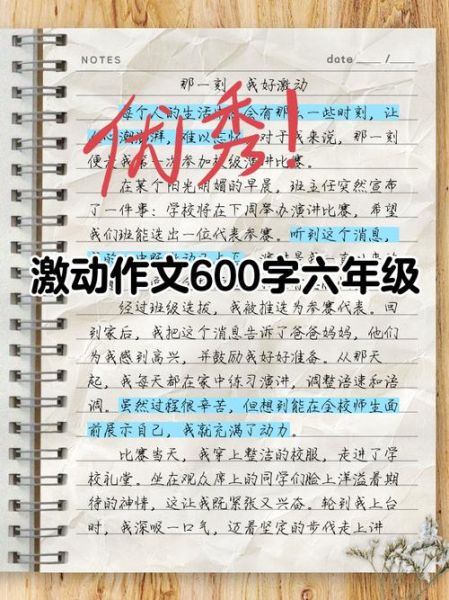 NOTES
date
那一刻，我好激动
每个人的生活中会有那么一些时刻，让
优秀！
难以忘怀。对于我来说，那一刻
便是我第一次参加校级演讲比赛。
在某个阳光明媚的早晨，班主任突然宣布
了一件事：学校将在下周举办演讲比赛，希望
我们班能选出一位代表参赛。听到这个消息，
激动作文600字六年级
经过班级选拔，我被推选为参赛代表。回
到家后，我把这个消息告诉了爸爸妈妈，他们
为我感到高兴，并鼓励我好好准备。从那天
起，我每天都在家中练习演讲，调整语速和语
调。虽然过程很辛苦，但想到能在全校师生面
前展示自己，我就充满了动力。
比赛当天，我穿上整洁的校服，走进了学
校礼堂。坐在观众席上的同学们脸上洋溢着期
待的神情，这让我既紧张又兴奋。轮到我上台
时，我深吸一口气，迈着坚定的步伐走上讲